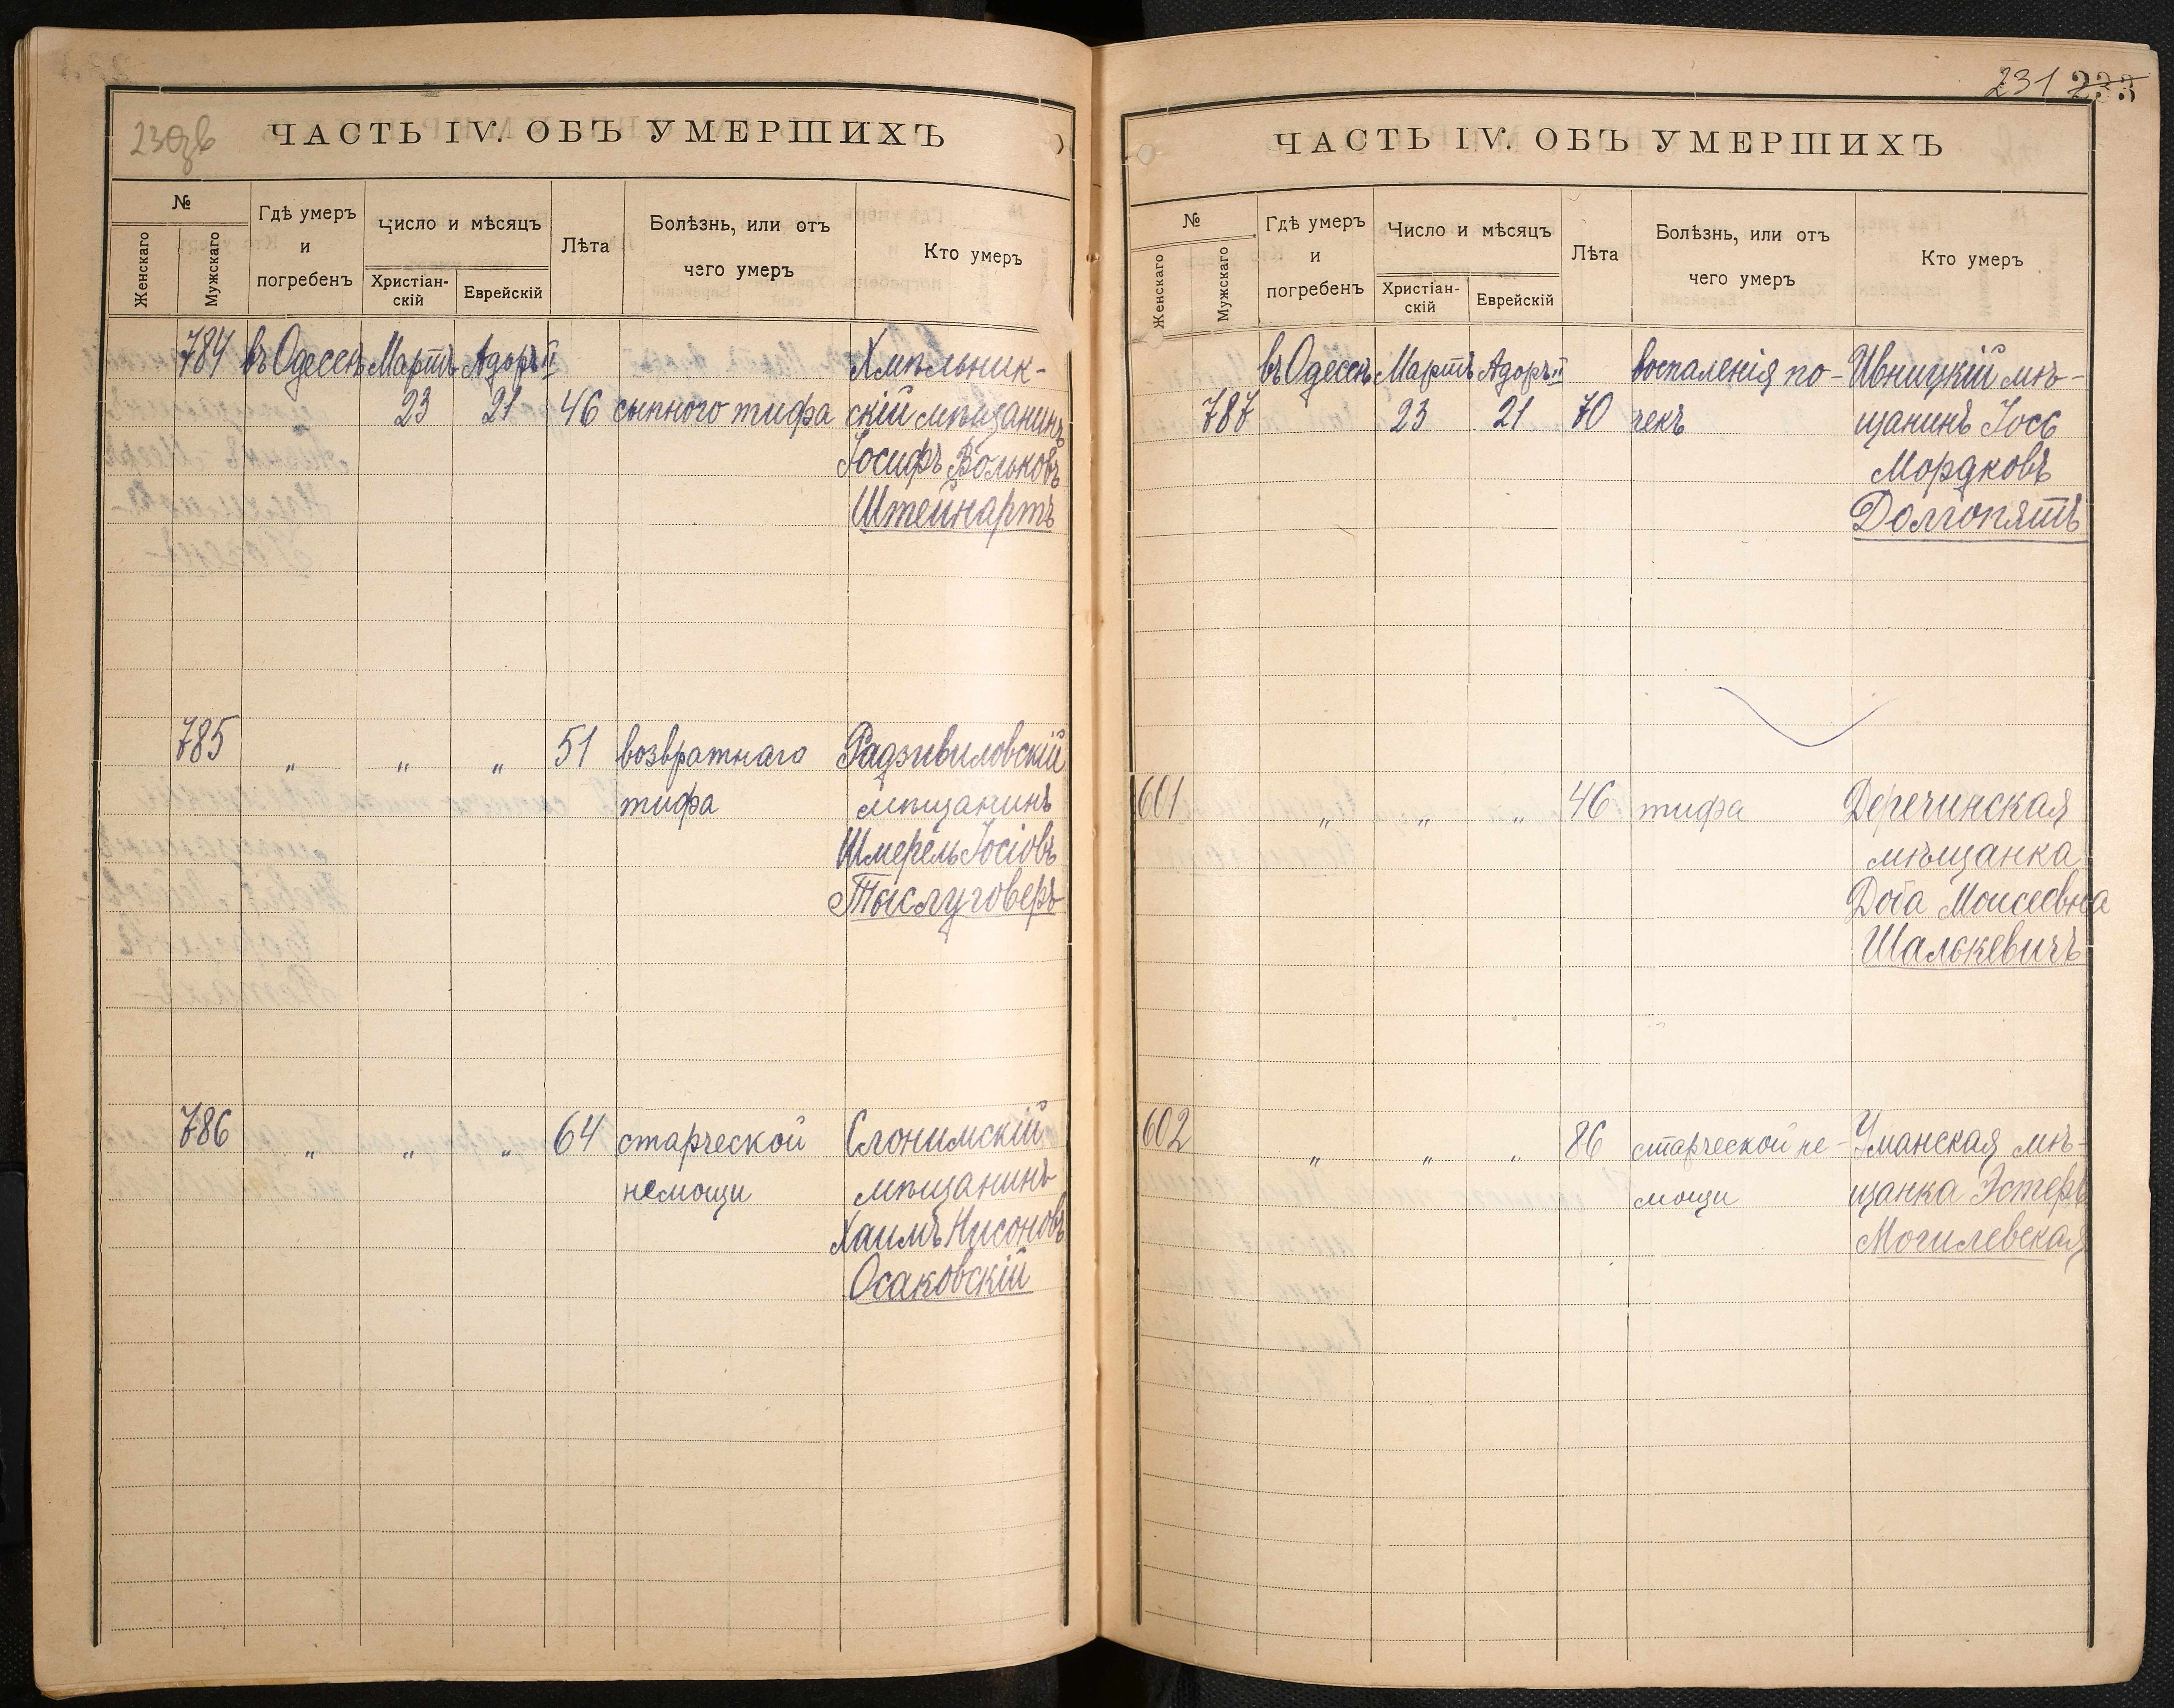 230об
ЧАСТЬ IV. ОБЪ УМЕРШИХЪ
№
Женскаго
Мужскаго
Гдѣ умеръ
и
погребенъ
Число и мѣсяцъ
Христіан-
скій
Еврейскій
Лѣта
Болѣзнь, или отъ
чего умеръ
Кто умеръ
784 въ Одессѣ Мартъ Адоръ II Хмѣльник-
23 21 46 сыпного тифа скій мѣщанинъ
Іосифъ Вольковъ
Штейнартъ
785 " " " 51 возвратнаго Радзивиловскій
тифа мѣщанинъ
Шмерель Іосіовъ
Тыслуговеръ
786 " " " 64 старческой Слонимскій
немощи мѣщанинъ
Хаимъ Нисоновъ
Осаковскій
231 233
ЧАСТЬ IV. ОБЪ УМЕРШИХЪ
№
Женскаго
Мужскаго
Гдѣ умеръ
и
погребенъ
Число и мѣсяцъ
Христіан-
скій
Еврейскій
Лѣта
Болѣзнь, или отъ
чего умеръ
Кто умеръ
въ Одессѣ Мартъ Адоръ II воспаленія по- Ивницкій мѣ-
787 23 21 70 чекъ щанинъ Іось
Мордковъ
Долгопятъ
601 " " " 46 тифа Деречинская
мѣщанка
Моисеевна
Шалькевичъ
602 " " " 86 старческой не- Уманская мѣ-
мощи щанка Эстеръ
Могилевская